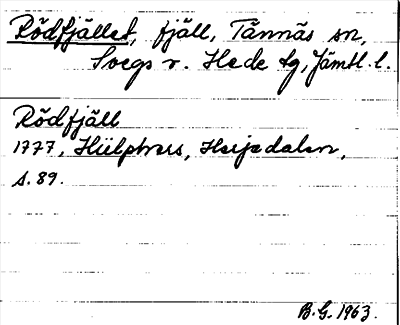 Rödfjället, fjäll, Tännäs sn,
Svegs r. Hede tg, Jämtl. l.
Rödfjäll
1777, Hülphers, Herjedalen,
s. 89.
B.G. 1963.